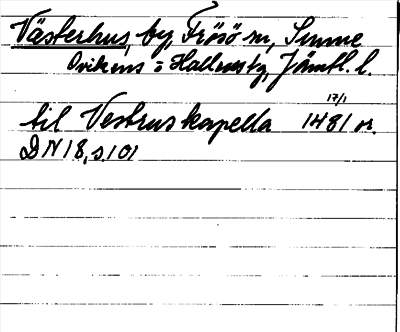 Västerhus, by, Frösö sn, Sunne
Ovikens o Hallens tg, Jämtl. l.
17/1
til Vestrus kapella 1481 or.
DN 18, s. 101